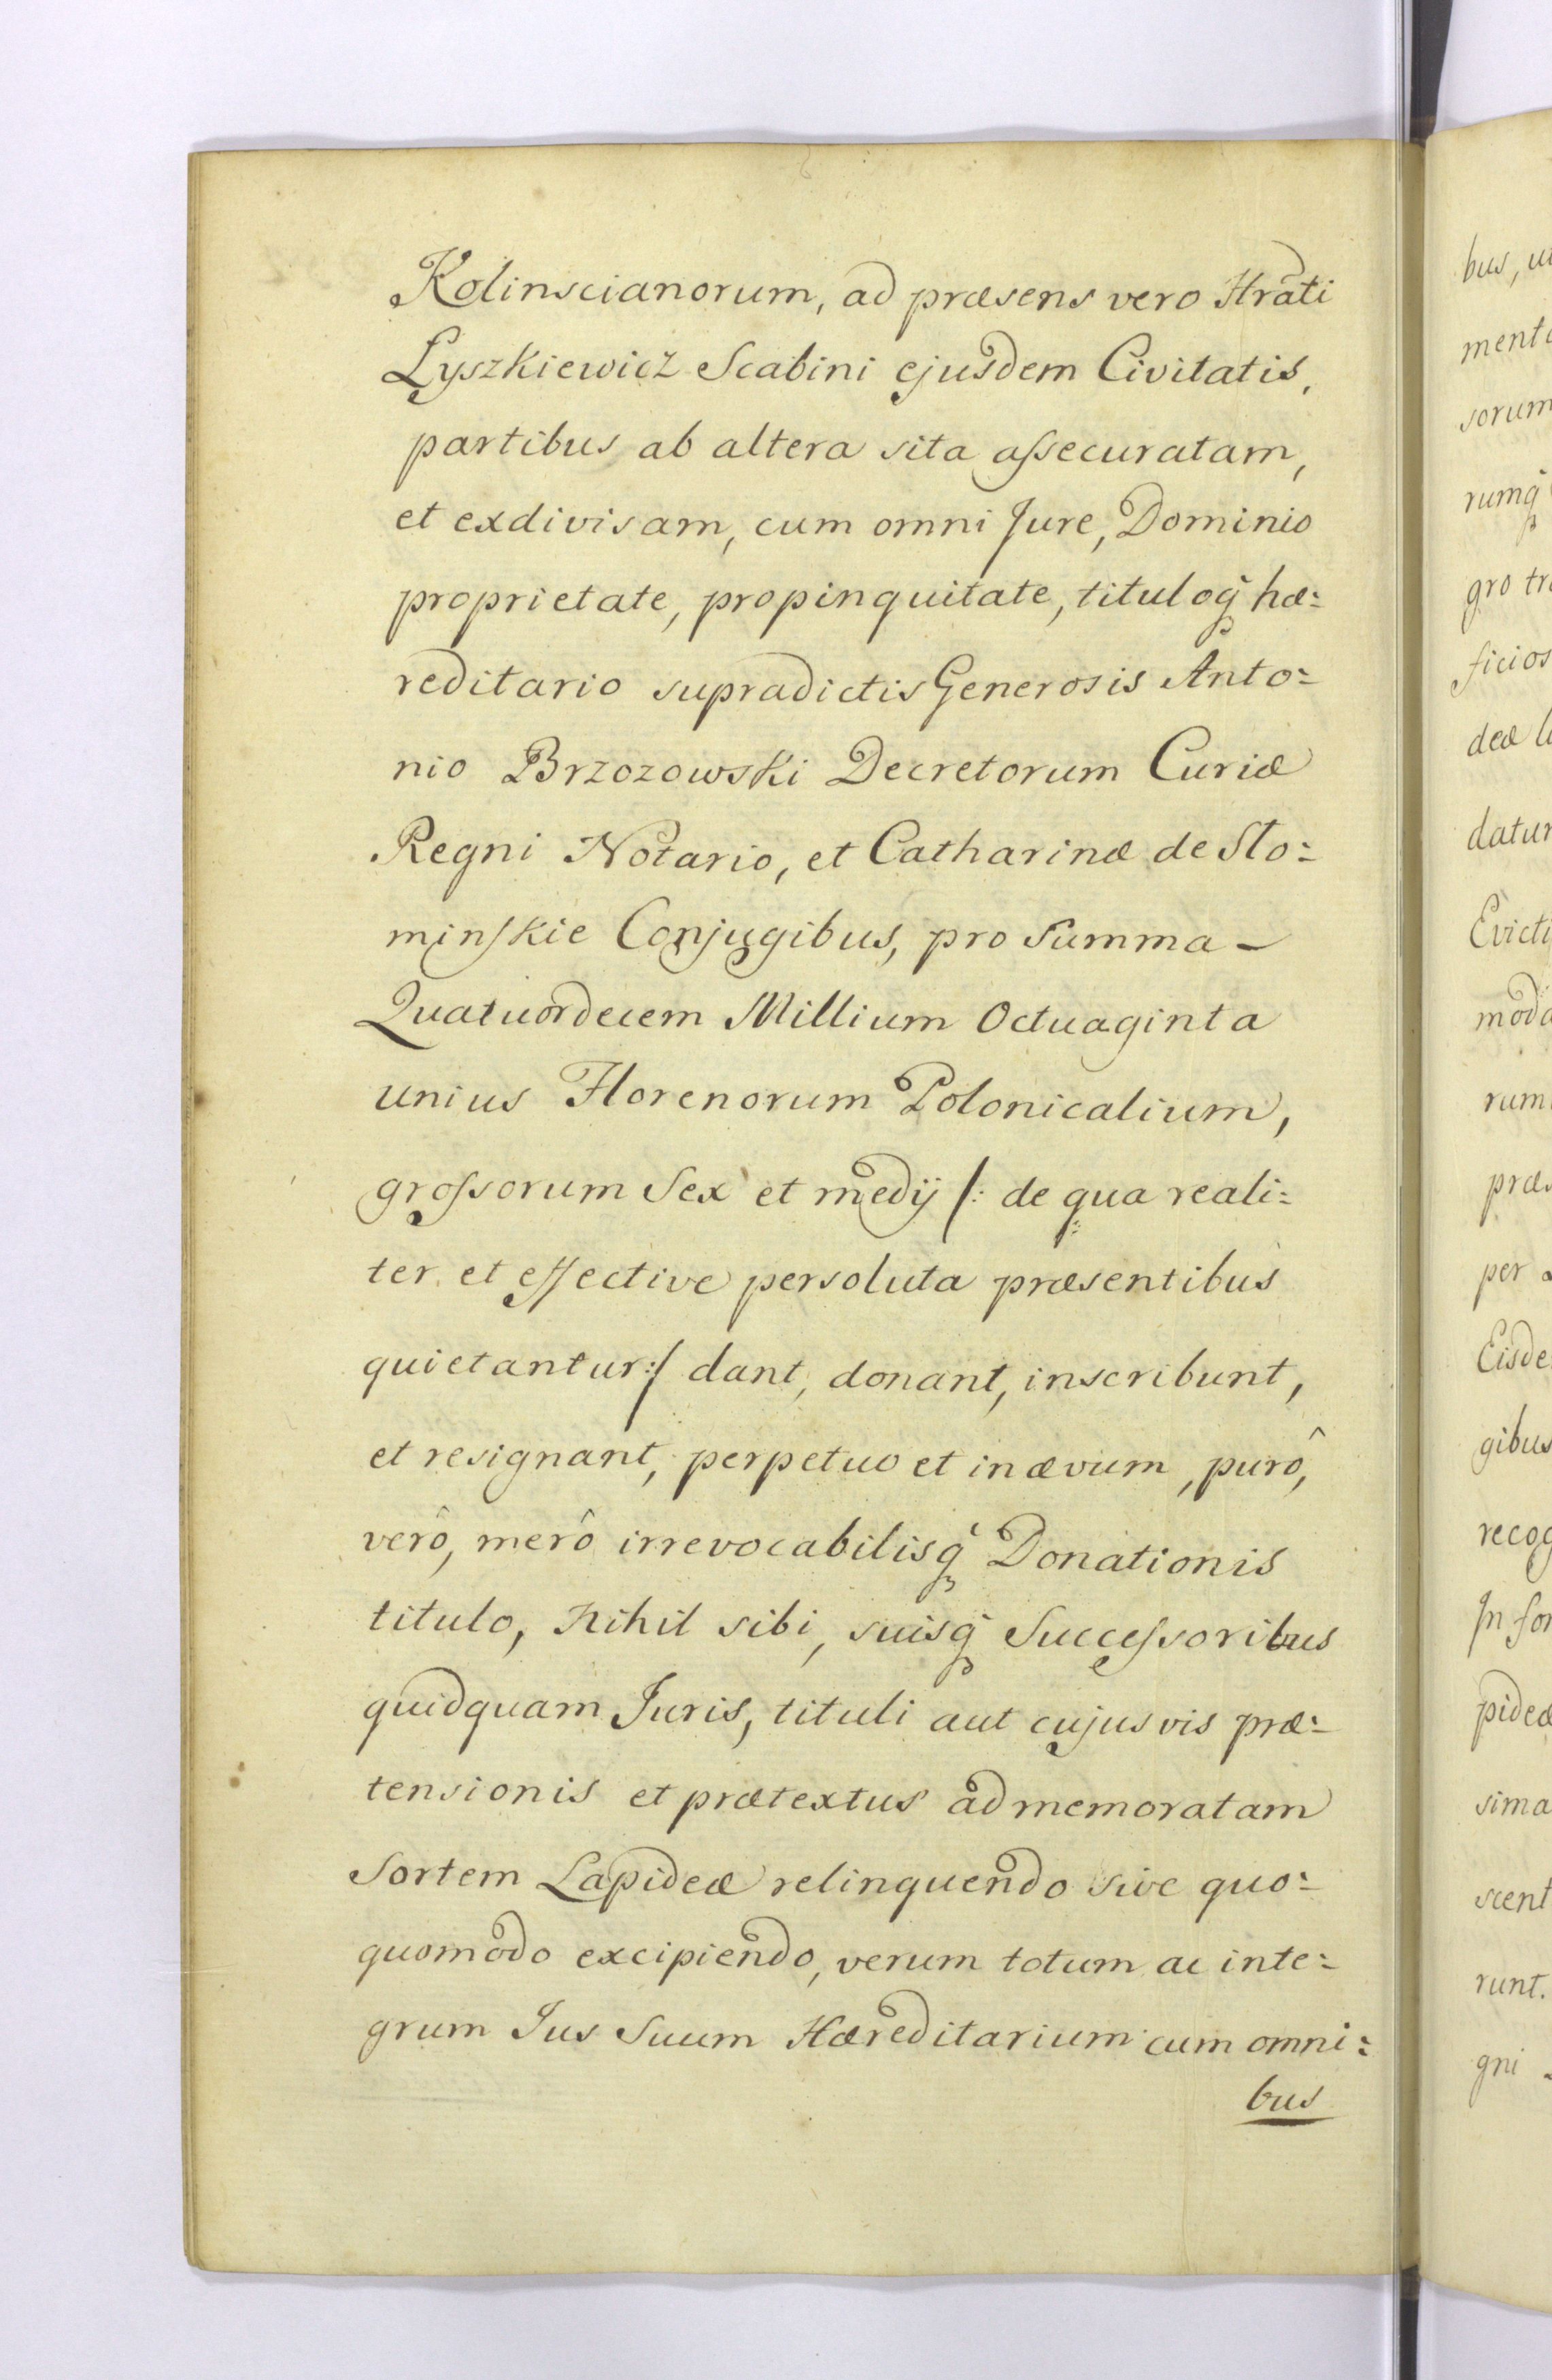 Kolinscianorum, ad præsens vero Hrati
Lyszkiewicz Scabini ejusdem Civitatis,
partibus ab altera sita aſsecuratam,
et exdivisam, cum omni Jure, Dominio
proprietate, propinquitate, tituloq̃ hæ:
reditario supradictis Generosis Anto:
nio Brzozowski Decretorum Curiæ
Regni Notario, et Catharinæ de Sło:
minſkie Conjugibus, pro Summa –
Quatuordecem Millium Octuaginta
unius Florenorum Polonicalium,
groſsorum Sex et medij /: de qua reali:
ter et effective persoluta præsentibus
quietantur :/ dant, donant, inscribunt,
et resignant, perpetuo et inævum, purô,
verô, merô irrevocabilisq̃ Donationis
titulo, Nihil sibi, suisq̃ Succeſsoribus
quidquam Juris, tituli aut cujusvis præ:
tensionis et prætextus ad memoratam
Sortem Lapideæ relinquendo sive quo:
quomodo excipiendo, verum totum ac inte:
grum Jus Suum Hæreditarium cum omni:
bus
bus,
sorum
rumq̃
gro
ficios
deæ
per
gibus
runt.
gni